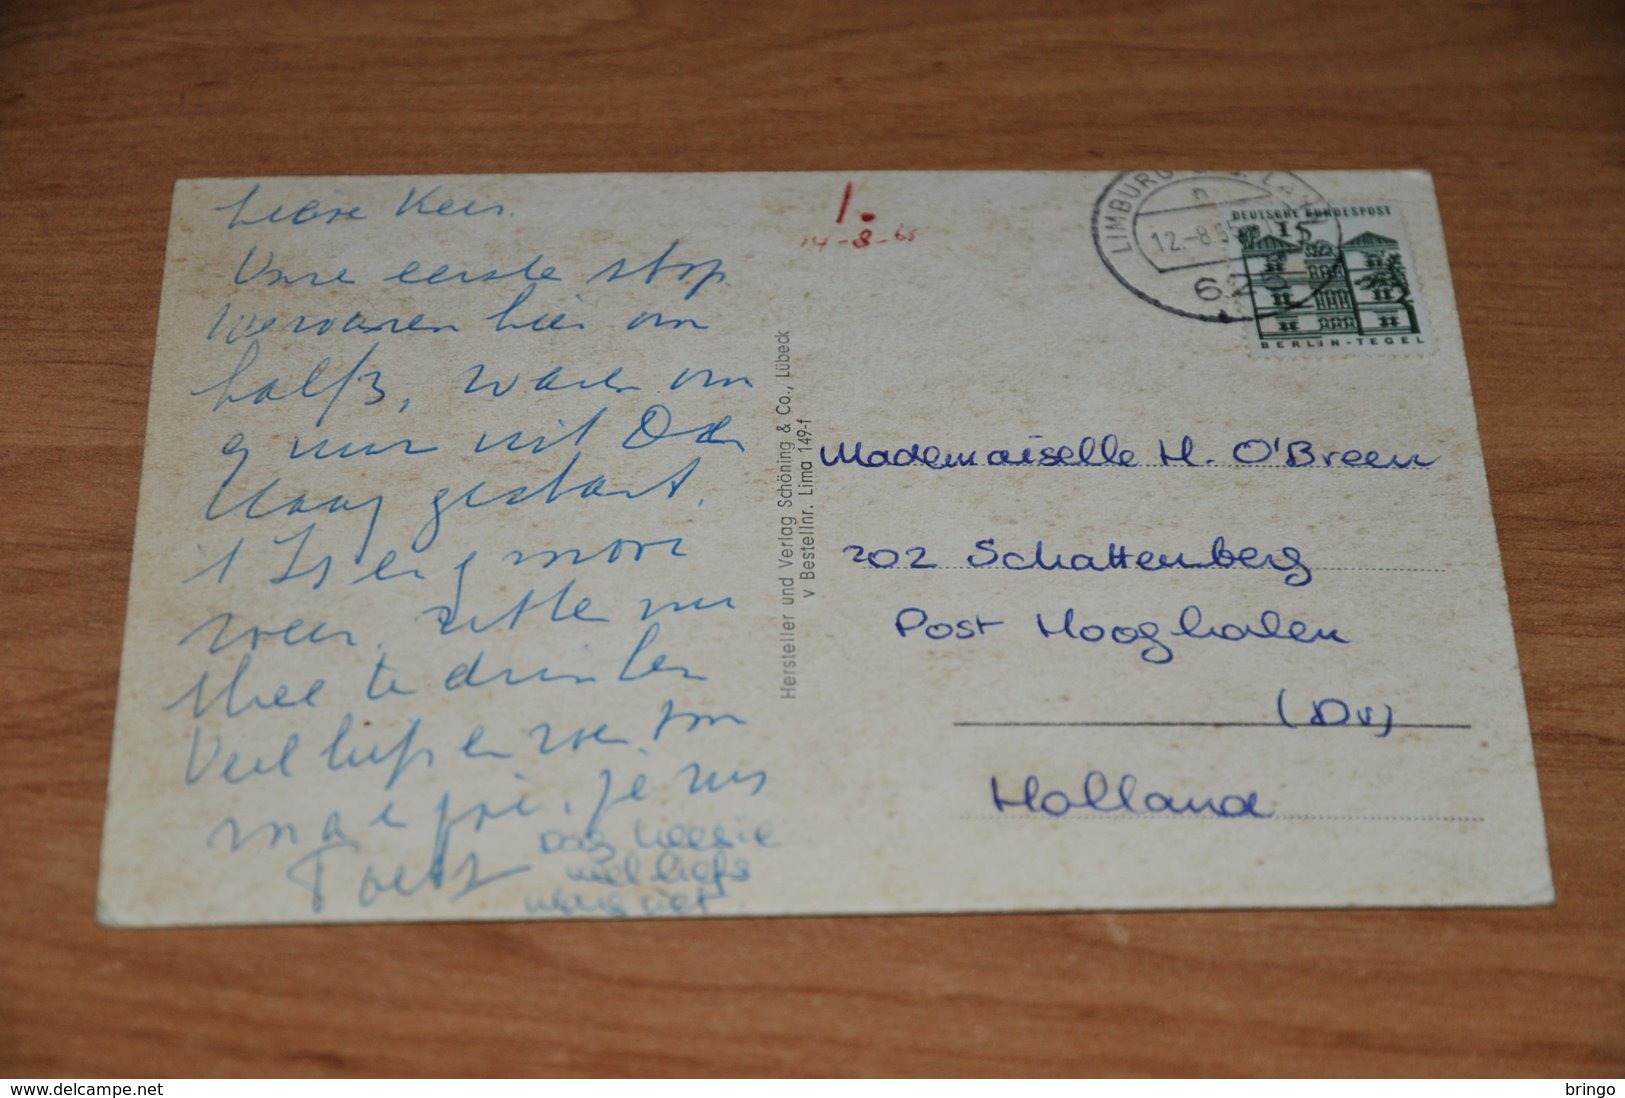 Lieve Kees.
Onze eerste stop
We waren hier om
half 3, waren om
9 uur uit Den
Haag gestart.
't Is erg mooi
weer, zitten nu
thee te drinken
Veel liefs en
Dag
veel liefs
margriet.
1.
14-8-65
Hersteller und Verlag Schöning & Co., Lübeck
v Bestellnr. Lima 149-f
LIMBURG LAHN
12.-8.65
DEUTSCHE BUNDESPOST
15
BERLIN-TEGEL
Mademoiselle H. O'Breen
202 Schattenberg
Post Hooghalen
(Dr)
Holland
delcampe.net
bringo